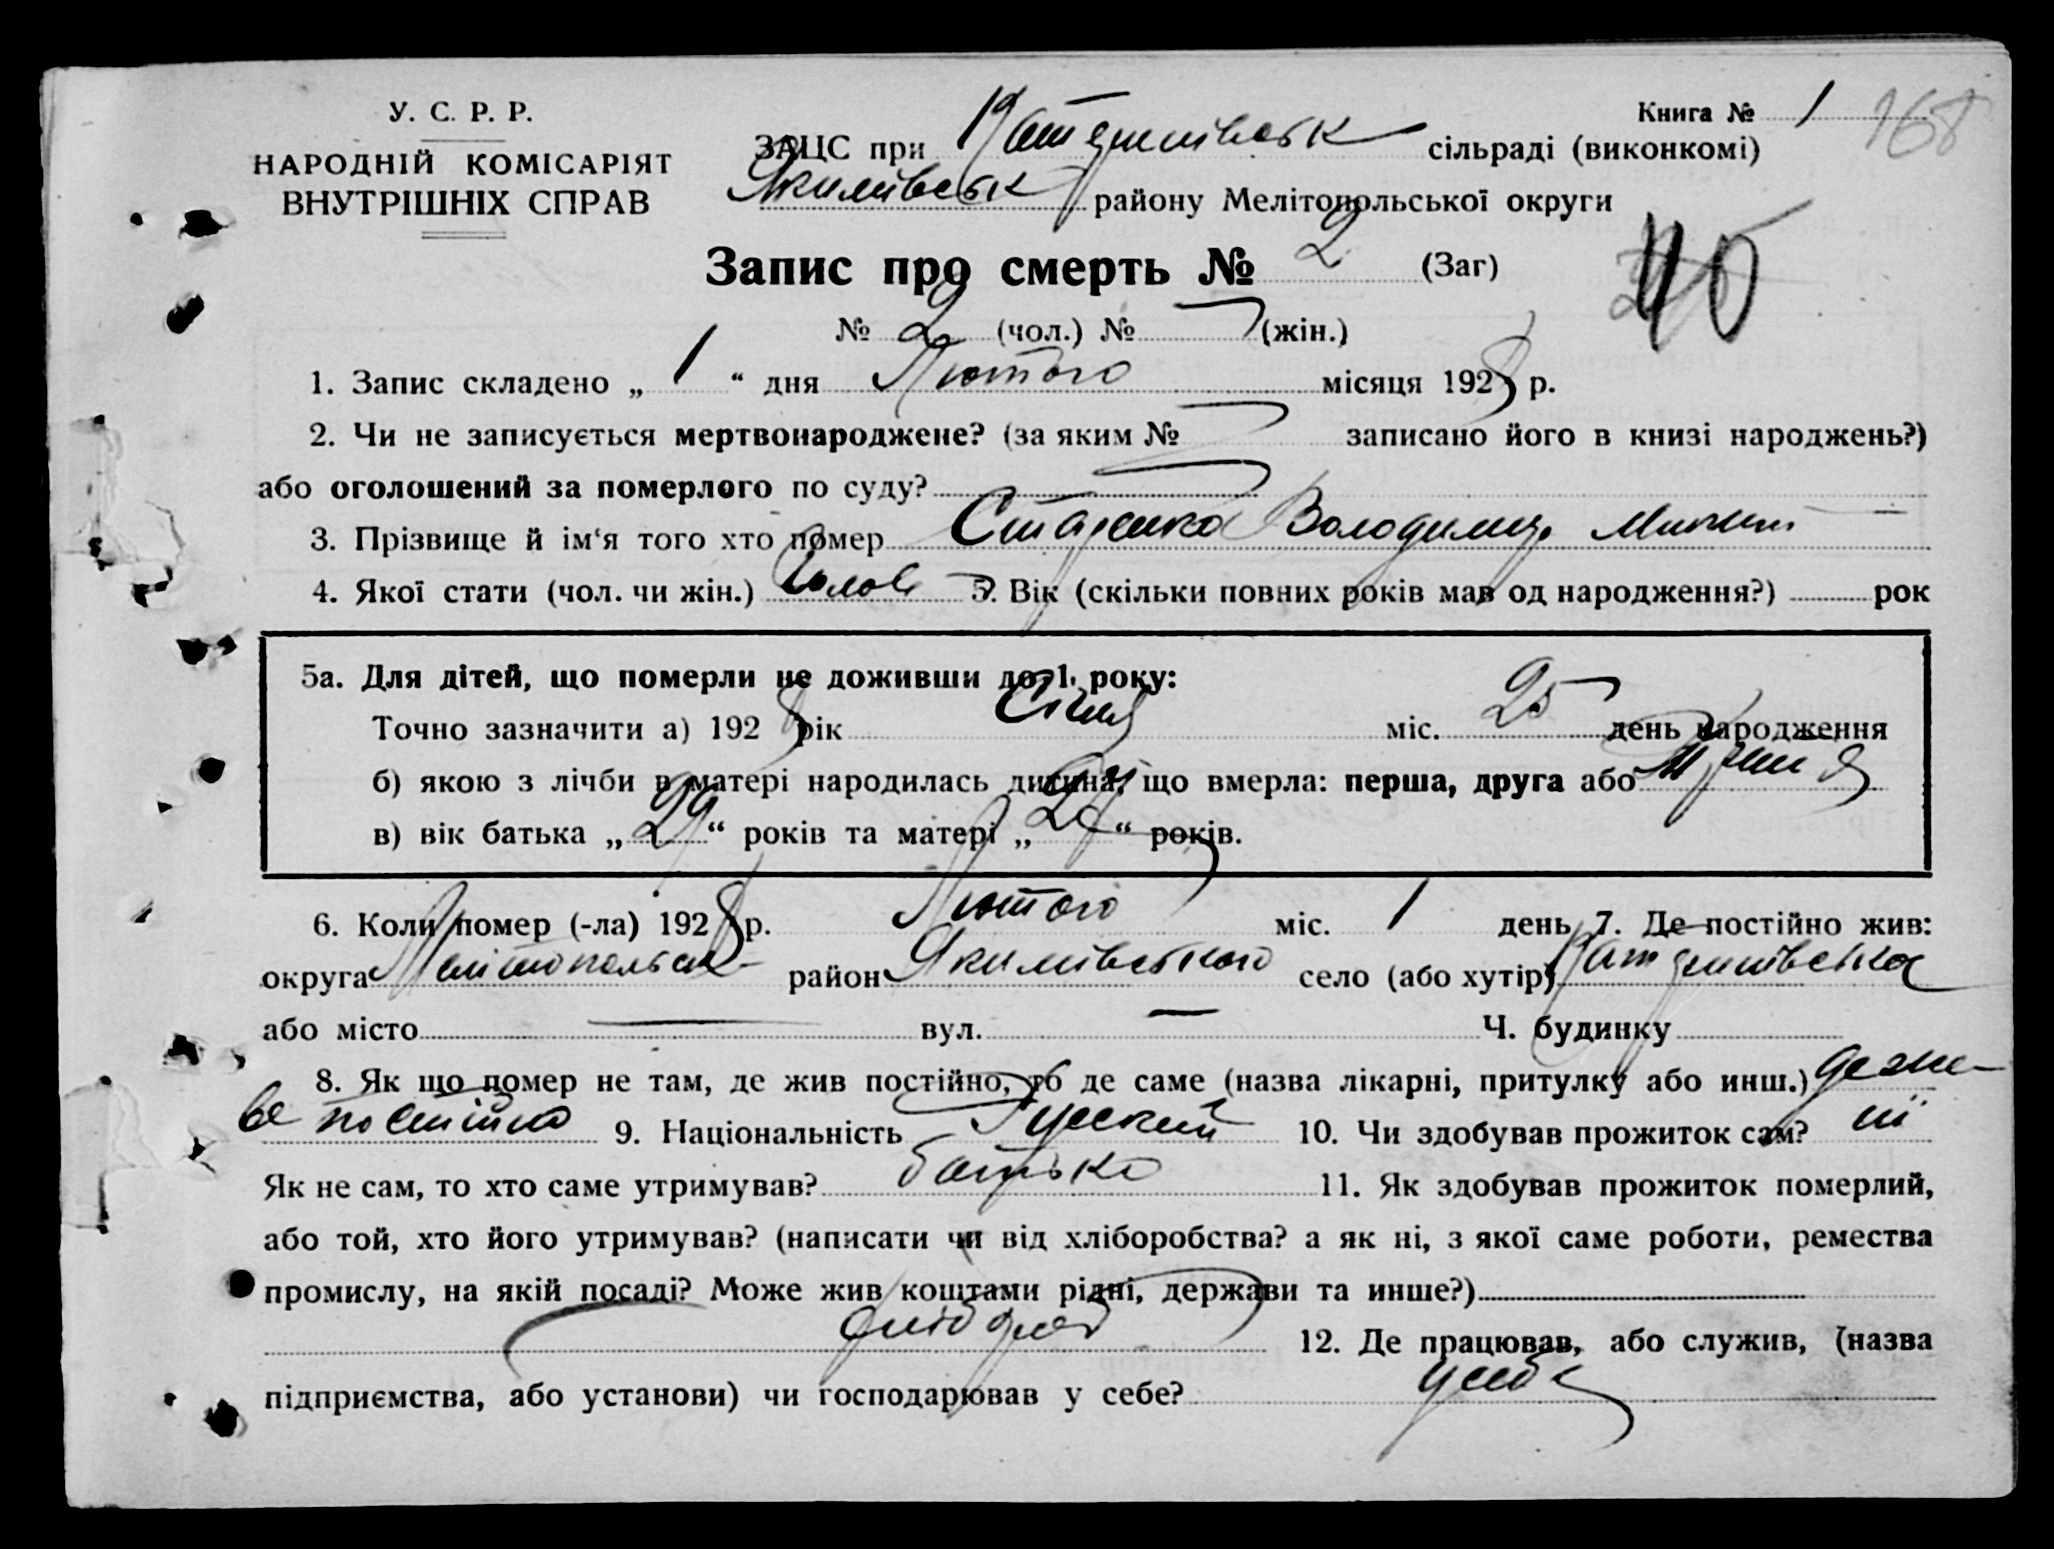 У. С. Р. Р.
НАРОДНІЙ КОМІСАРІЯТ
ВНУТРІШНІХ СПРАВ
Книга № 1 168
ЗАЦС при сільраді (виконкомі)
Якимівськ району Мелітопольської округи
Запис про смерть № 2 (Заг)
№ 2 (чол.) № — (жін.)
1. Запис складено „ 1 “ дня Лютого місяця 1928 р.
2. Чи не записується мертвонароджене? (за яким № — записано його в книзі народжень?)
або оголошений за померлого по суду? —
3. Прізвище й ім‘я того хто помер Старенко Володимир
4. Якої стати (чол. чи жін.) Чолов 5. Вік (скільки повних років мав од народження?) рок
5а. Для дітей, що померли не доживши до 1 року:
Точно зазначити а) 1928 рік Січня міс. 25 день народження
б) якою з лічби в матері народилась дитина, що вмерла: перша, друга або третя
в) вік батька „ 29 “ років та матері „ “ років.
6. Коли помер (-ла) 1928 р. Лютого міс. 1 день 7. Де постійно жив:
округа Мелітопольськ район Якимівського село (або хутір)
або місто — вул. — Ч. будинку
8. Як що помер не там, де жив постійно, то де саме (назва лікарні, притулку або инш.) де жи-
ве постійно 9. Національність Русский 10. Чи здобував прожиток сам? ні
Як не сам, то хто саме утримував? батько 11. Як здобував прожиток померлий,
або той, хто його утримував? (написати чи від хліборобства? а як ні, з якої саме роботи, ремества
промислу, на якій посаді? Може жив коштами рідні, держави та инше?)
хлібороб 12. Де працював, або служив, (назва
підприємства, або установи) чи господарював у себе? у себе